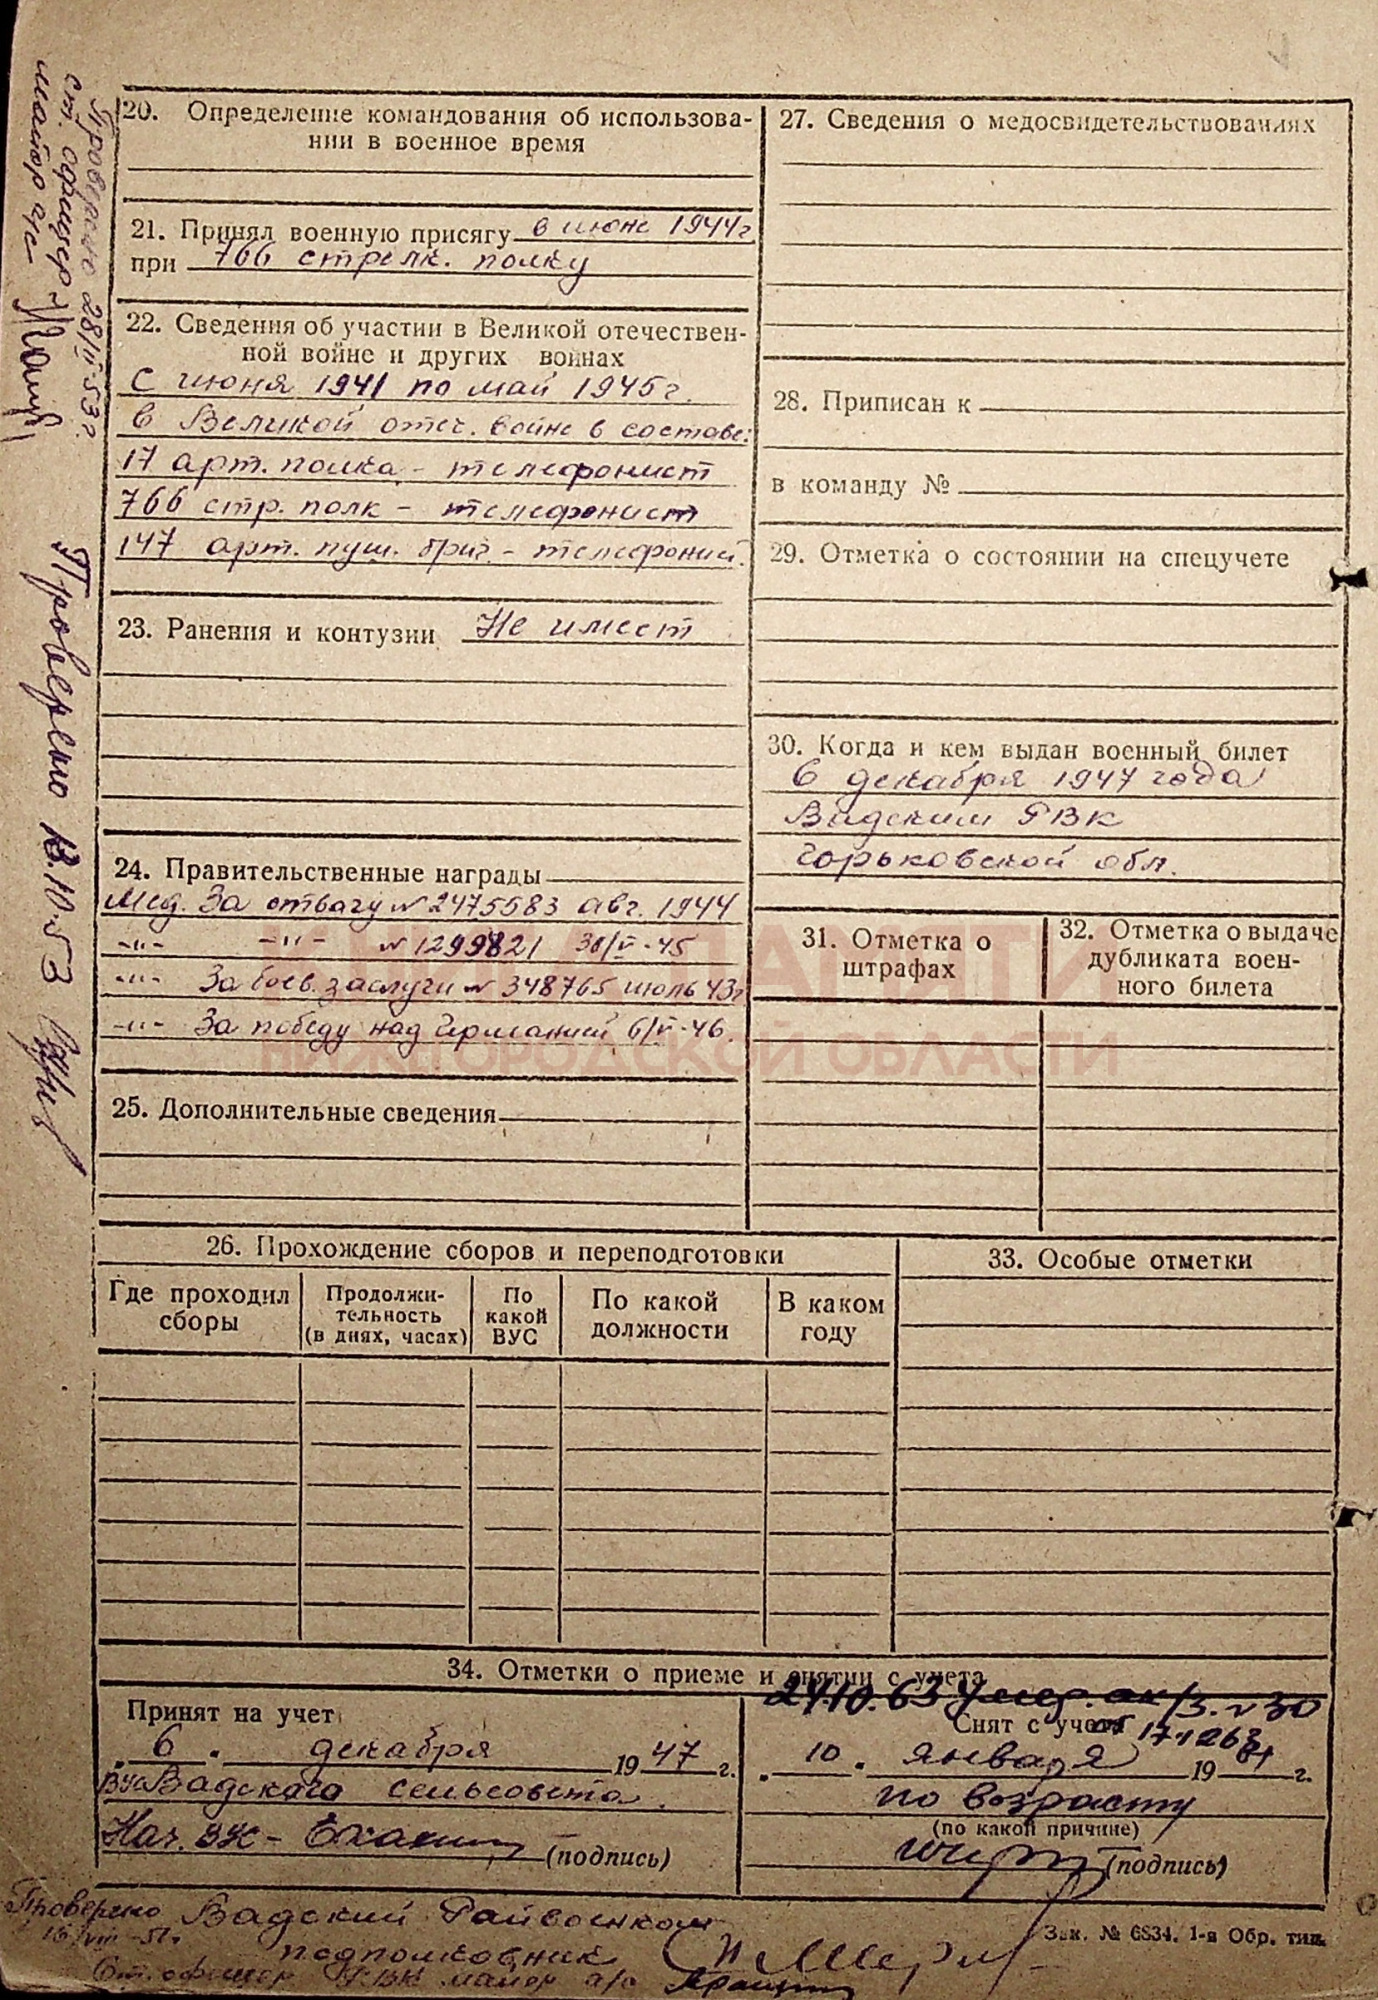 20. Определение командования об использова-
нии в военное время
21. Принял военную присягу в июне 1944 г.
при 766 стрелк. полку
22. Сведения об участии в Великой отечествен-
ной войне и других войнах
С июня 1941 по май 1945 г.
в Великой отеч. войне в составе:
17 арт. полка - телефонист
766 стр. полк - телефонист
147 арт. пуш. бриг - телефонист.
23. Ранения и контузии Не имеет
24. Правительственные награды
Мед. За отвагу № 2475583 авг. 1944
-"- -"- № 1299821 30/V-45
-"- За боев. заслуги № 348765 июль 43 г
-"- За победу над Германией 6/V-46.
25. Дополнительные сведения
27. Сведения о медосвидетельствованиях
28. Приписан к
в команду №
29. Отметка о состоянии на спецучете
30. Когда и кем выдан военный билет
6 декабря 1947 года
Вадским РВК
Горьковской обл.
31. Отметка о
штрафах
32. Отметка о выдаче
дубликата воен-
ного билета
КНИГА ПАМЯТИ
НИЖЕГОРОДСКОЙ ОБЛАСТИ
26. Прохождение сборов и переподготовки
Где проходил
сборы
Продолжи-
тельность
(в днях, часах)
По
какой
ВУС
По какой
должности
В каком
году
33. Особые отметки
34. Отметки о приеме и снятии с учета
Принят на учет
"6" декабря 1947 г.
ВУС Вадского сельсовета.
Нач. ВУС - (подпись)
24.10.63 Умер. ак/з. № 30
Снят с учета от
"10" января 1961 г.
по возрасту
(по какой причине)
(подпись)
Зак. № 6834. 1-я Обр. тип.
Проверено 28/II-53 г.
ст. офицер
майор а/с
Проверено 13.10.53
Проверено Вадский Райвоенком
15/VIII-51 г. подполковник
Ст. офицер РВК майор а/с